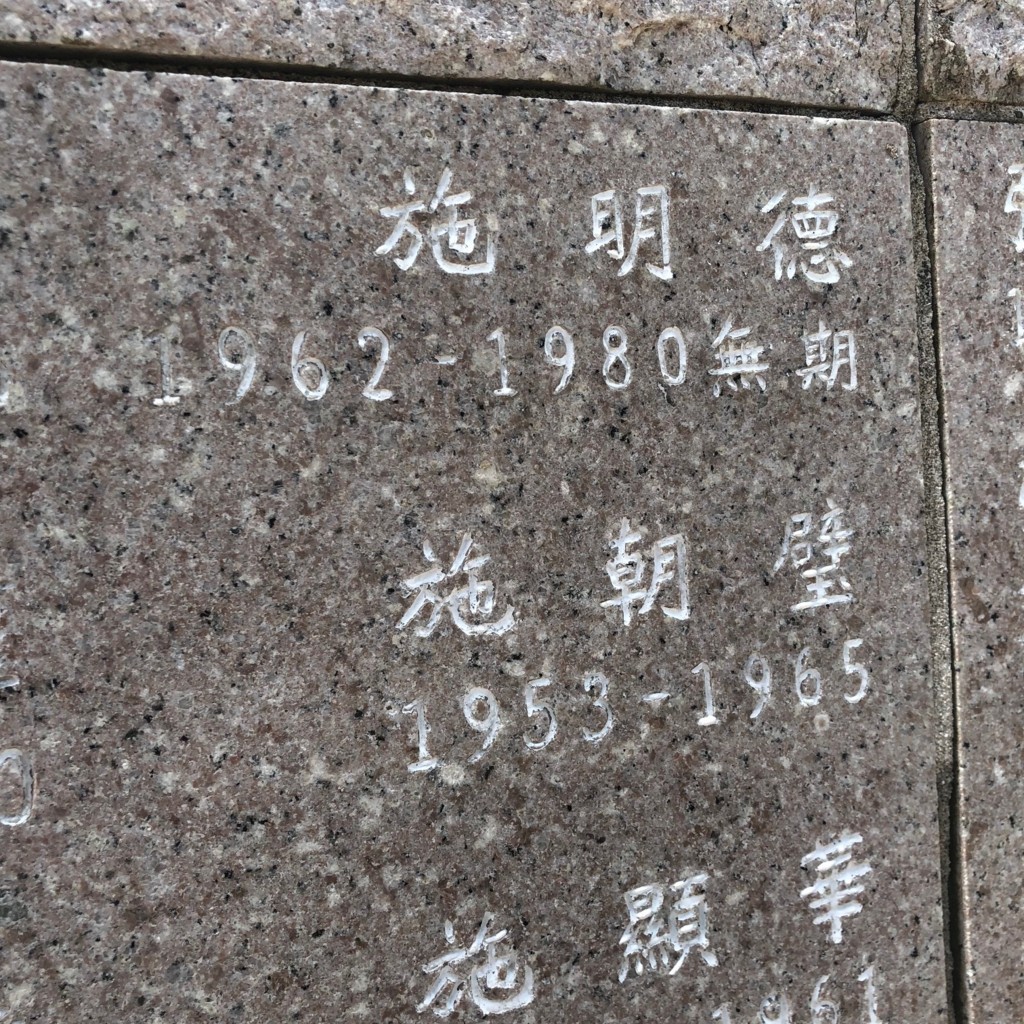 施明德
1962-1980無期
施朝璧
1953-1965
施顯華
1961